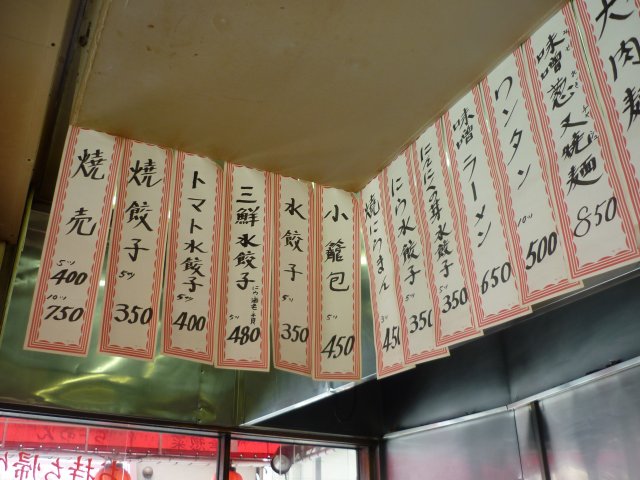 焼売 5ツ 400 10ツ 750
焼餃子 5ツ 350
トマト水餃子 5ツ 400
三鮮水餃子 5ツ 480
水餃子 5ツ 350
小籠包 5ツ 450
焼にらまん 3ツ 450
にら水餃子 5ツ 350
にんにくの芽水餃子 5ツ 350
味噌ラーメン 650
ワンタン 10ツ 500
味噌葱叉焼麺 850
大肉麺
お持ち帰り